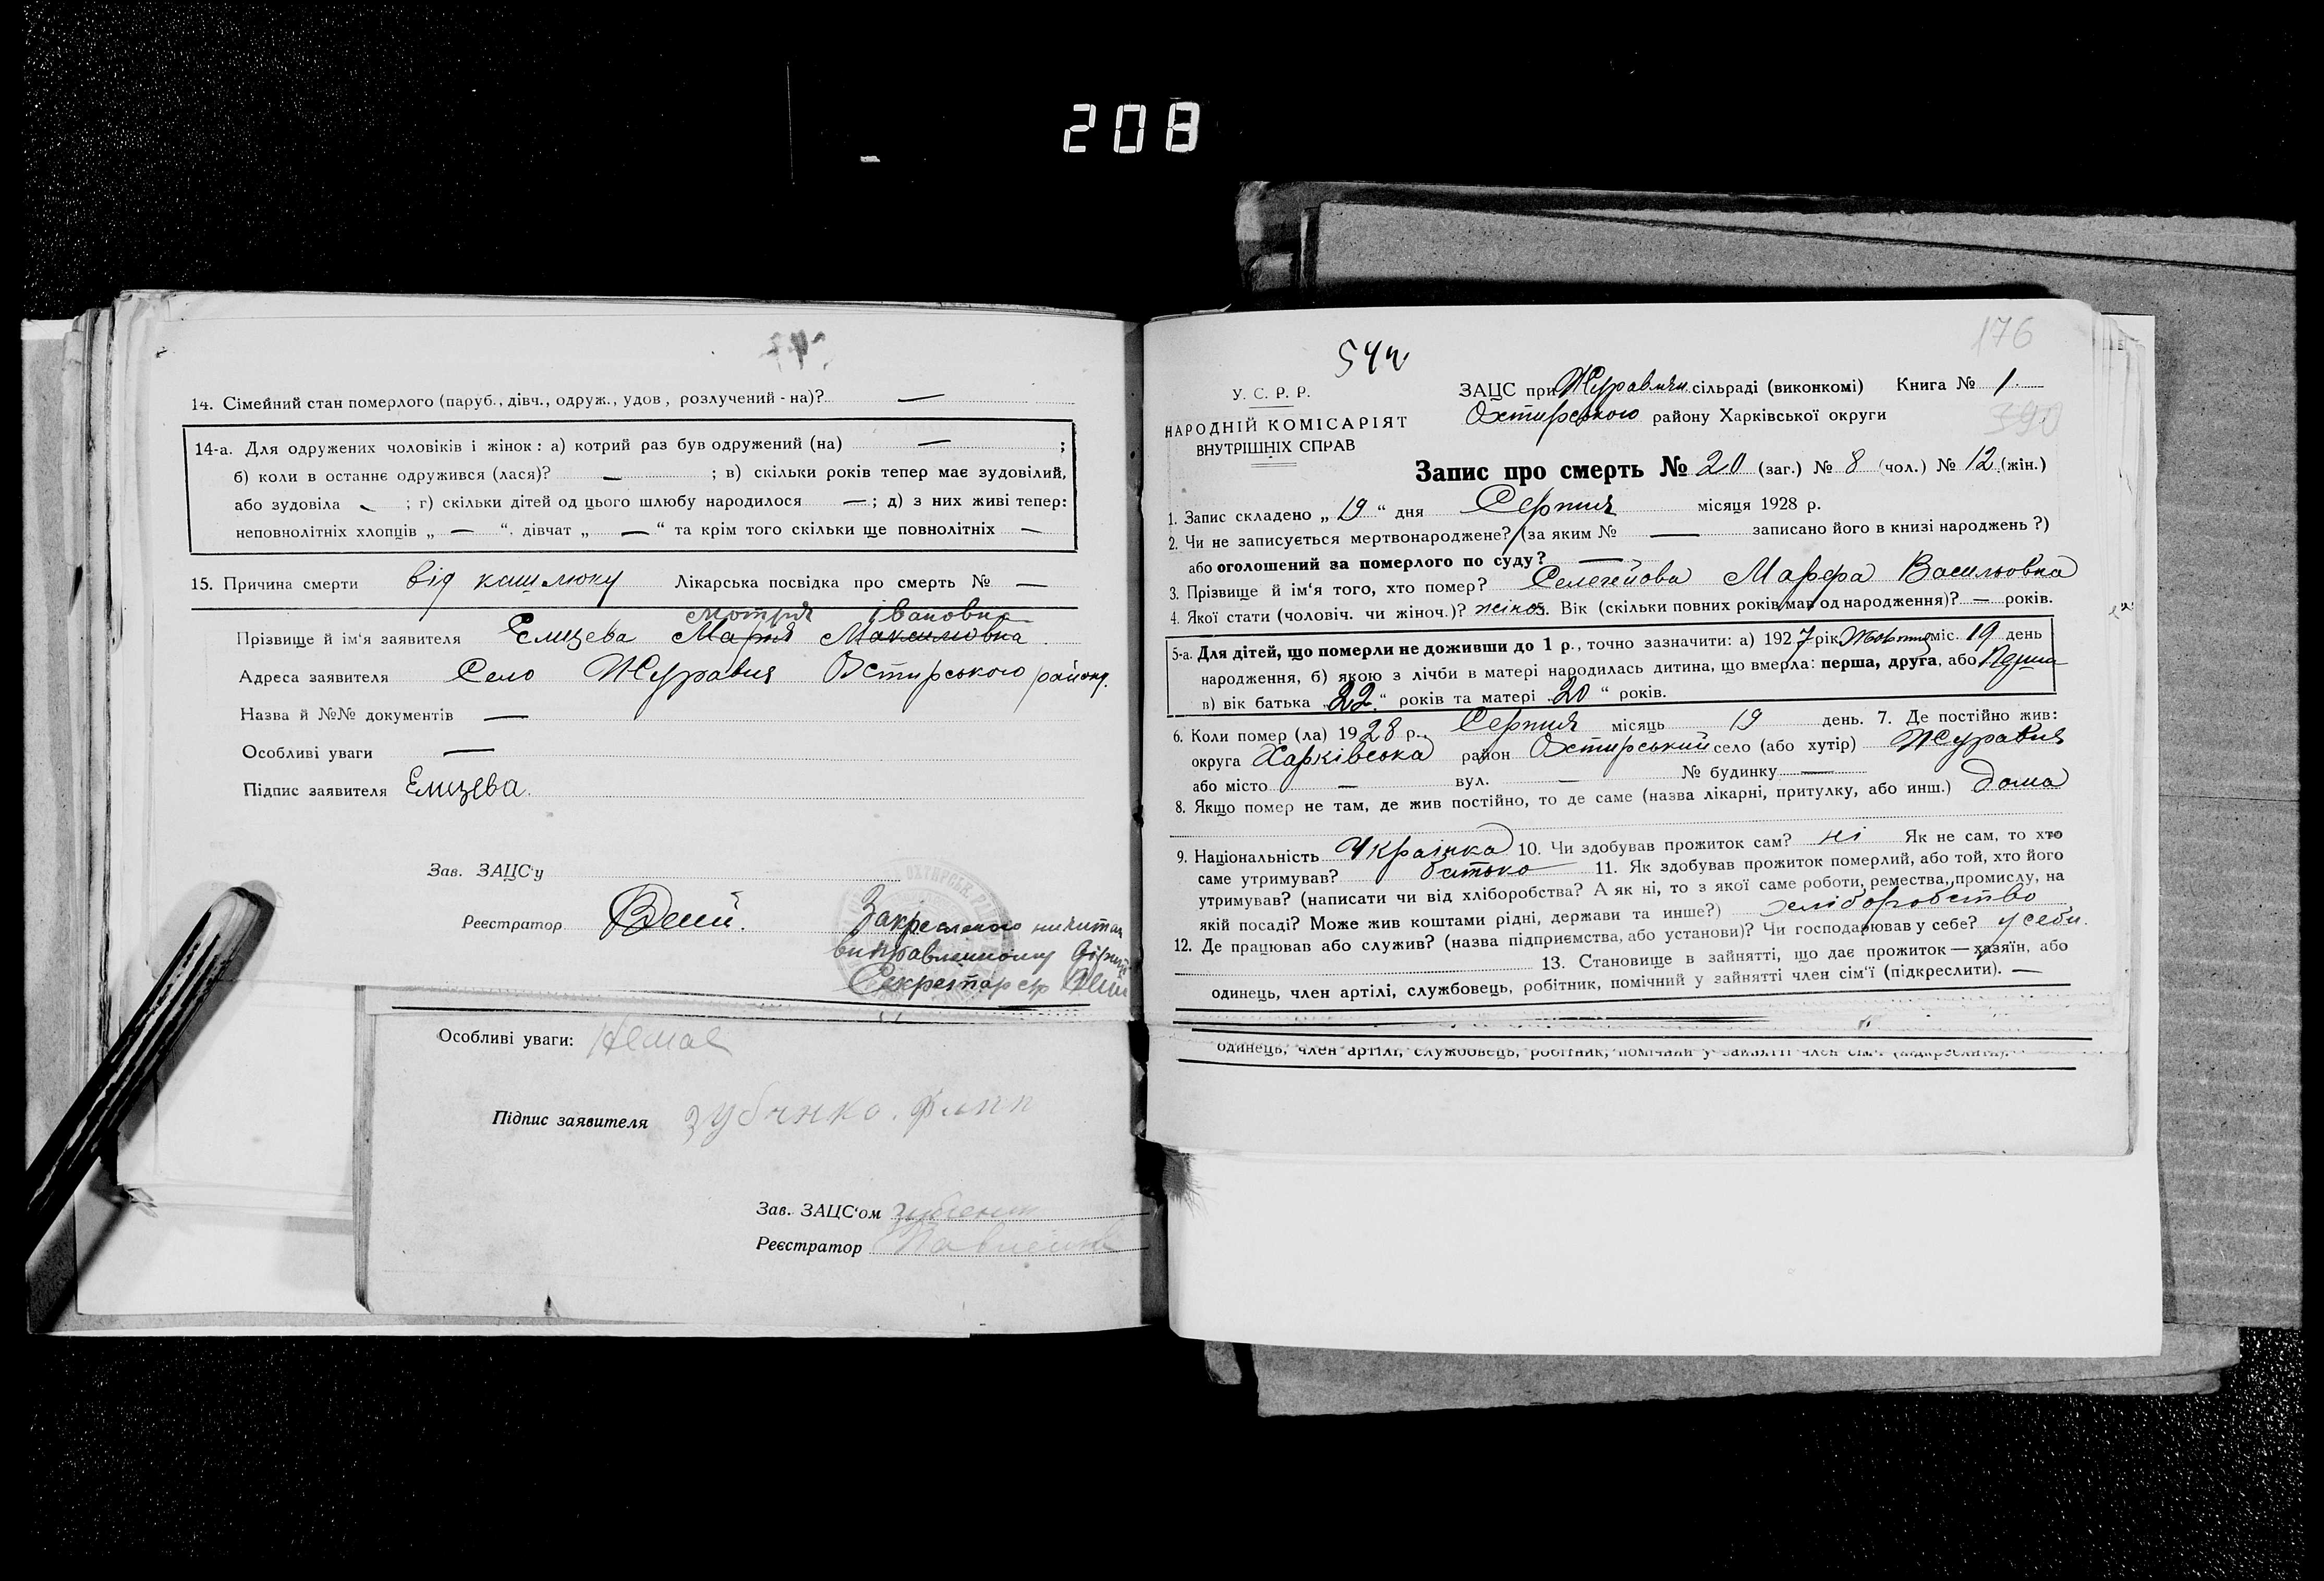 208
14. Сімейний стан померлого (паруб., дівч., одруж., удов, розлучений - на)? —
14-а. Для одружених чоловіків і жінок: а) котрий раз був одружений (на) — ;
б) коли в останнє одружився (лася)? — ; в) скільки років тепер має зудовілий,
або зудовіла — ; г) скільки дітей од цього шлюбу народилося — ; д) з них живі тепер:
неповнолітніх хлопців „ — “. дівчат „ — “ та крім того скільки ще повнолітніх —
15. Причина смерти від кашлюку Лікарська посвідка про смерть № —
Мотря Івановна
Прізвище й ім'я заявителя Єлизева Мария Максимовна
Адреса заявителя Село Журавня Охтирського району.
Назва й №№ документів —
Особливі уваги —
Підпис заявителя Елизева.
Зав. ЗАЦС'у
Реєстратор
Закресленого
виправленному
Секретар
Особливі уваги: Немає
Підпис заявителя
Зав. ЗАЦС'ом
Реєстратор
176
У. С. Р. Р.
НАРОДНІЙ КОМІСАРІЯТ
ВНУТРІШНІХ СПРАВ
ЗАЦС при сільраді (виконкомі) Книга № 1
Охтирського району Харківської округи
390
Запис про смерть № 20 (заг.) № 8 (чол.) № 12 (жін.)
1. Запис складено „ 19 “ дня Серпня місяця 1928 р.
2. Чи не записується мертвонароджене? (за яким № — записано його в книзі народжень?)
або оголошений за померлого по суду? —
3. Прізвище й ім'я того, хто помер? Селегейова Марфа Васильовна
4. Якої стати (чоловіч. чи жіноч.)? жіноч. Вік (скільки повних років мав од народження)? — років.
5-а. Для дітей, що померли не доживши до 1 р., точно зазначити: а) 1927 рік Жовтня міс. 19 день
народження, б) якою з лічби в матері народилась дитина, що вмерла: перша, друга, або Перша
в) вік батька „ 22 “ років та матері „ 20 “ років.
6. Коли помер (ла) 1928 р., Серпня місяць 19 день. 7. Де постійно жив:
округа Харківська район Охтирський село (або хутір) Журавня
або місто — вул. — № будинку —
8. Якщо помер не там, де жив постійно, то де саме (назва лікарні, притулку, або инш.) дома
9. Національність Українка 10. Чи здобував прожиток сам? ні Як не сам, то хто
саме утримував? батько 11. Як здобував прожиток померлий, або той, хто його
утримував? (написати чи від хліборобства? А як ні, то з якої саме роботи, ремества, промислу, на
якій посаді? Може жив коштами рідні, держави та инше?) хліборобство
12. Де працював або служив? (назва підприємства, або установи)? Чи господарював у себе? у себе.
13. Становище в зайнятті, що дає прожиток — хазяїн, або
одинець, член артілі, службовець, робітник, помічний у зайнятті член сім'ї (підкреслити). —
одинець, член артілі, службовець, робітник, помічний у зайнятті член сім'ї (підкреслити).